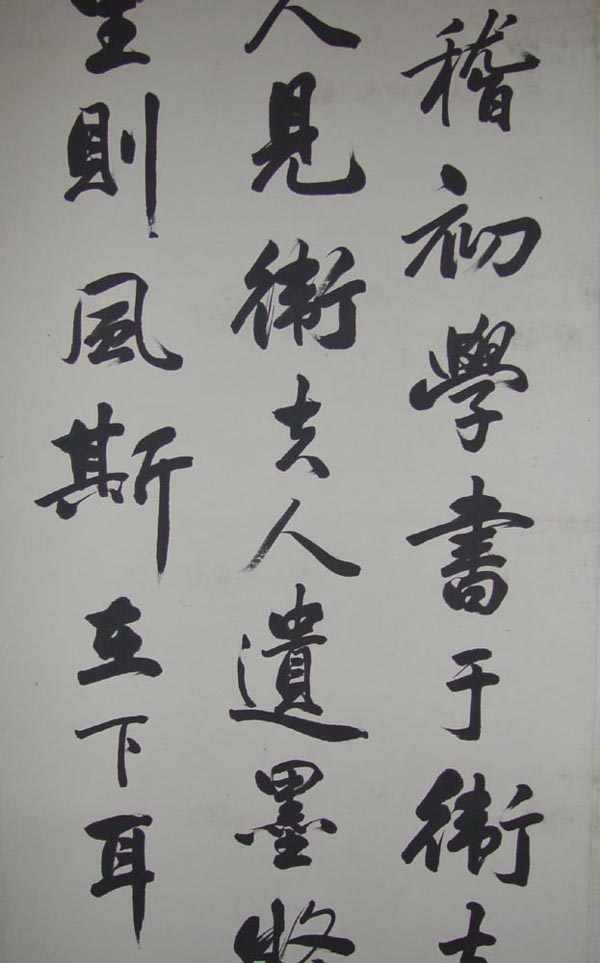 稽初學書于衛夫
人見衛夫人遺墨
里則風斯在下耳